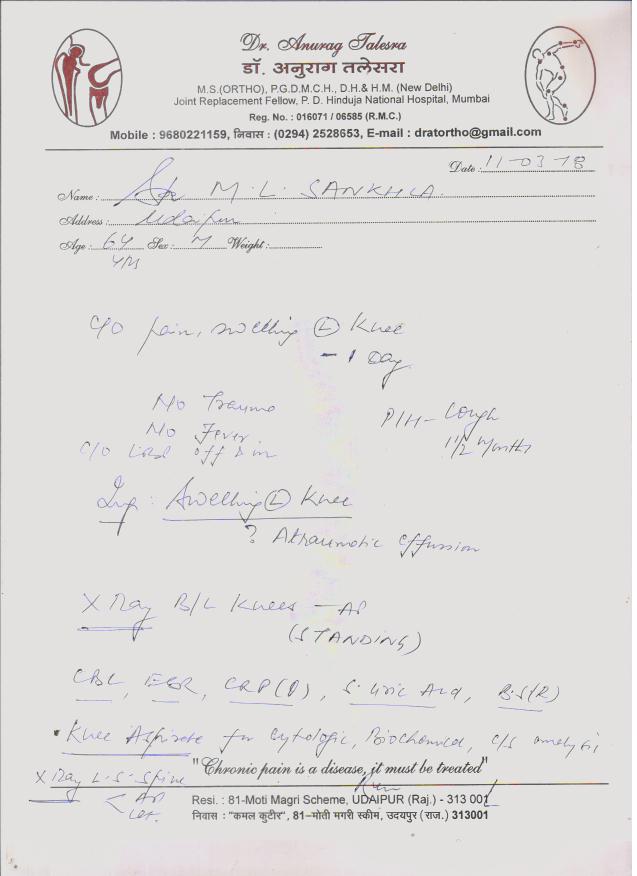 Dr. Anurag Talesra
डॉ. अनुराग तलेसरा
M.S.(ORTHO), P.G.D.M.C.H., D.H.& H.M. (New Delhi)
Joint Replacement Fellow, P. D. Hinduja National Hospital, Mumbai
Reg. No. : 016071 / 06585 (R.M.C.)
Mobile : 9680221159, निवास : (0294) 2528653, E-mail : dratortho@gmail.com
Date : 11-03-18
Name : M.L. SANKHLA
Address : Udaipur
Age : 64 Sex : M Weight :
yrs
C/O pain, swelling (L) Knee
- 1 Day
No Trauma
No Fever
P/H - Cough
1 1/2 Months
C/O off & on
Imp : Swelling (L) Knee
? Atraumatic effussion
X Ray B/L Knees - AP
(STANDING)
CBC, ESR, CRP(Q), S. Uric Acid, B.S(R)
Knee Aspirate for Cytologic, Biochemical, C/S analysis
"Chronic pain is a disease, it must be treated"
X Ray L.S. Spine
AP
Lat.
Resi. : 81-Moti Magri Scheme, UDAIPUR (Raj.) - 313 001
निवास : "कमल कुटीर", 81–मोती मगरी स्कीम, उदयपुर (राज.) 313001